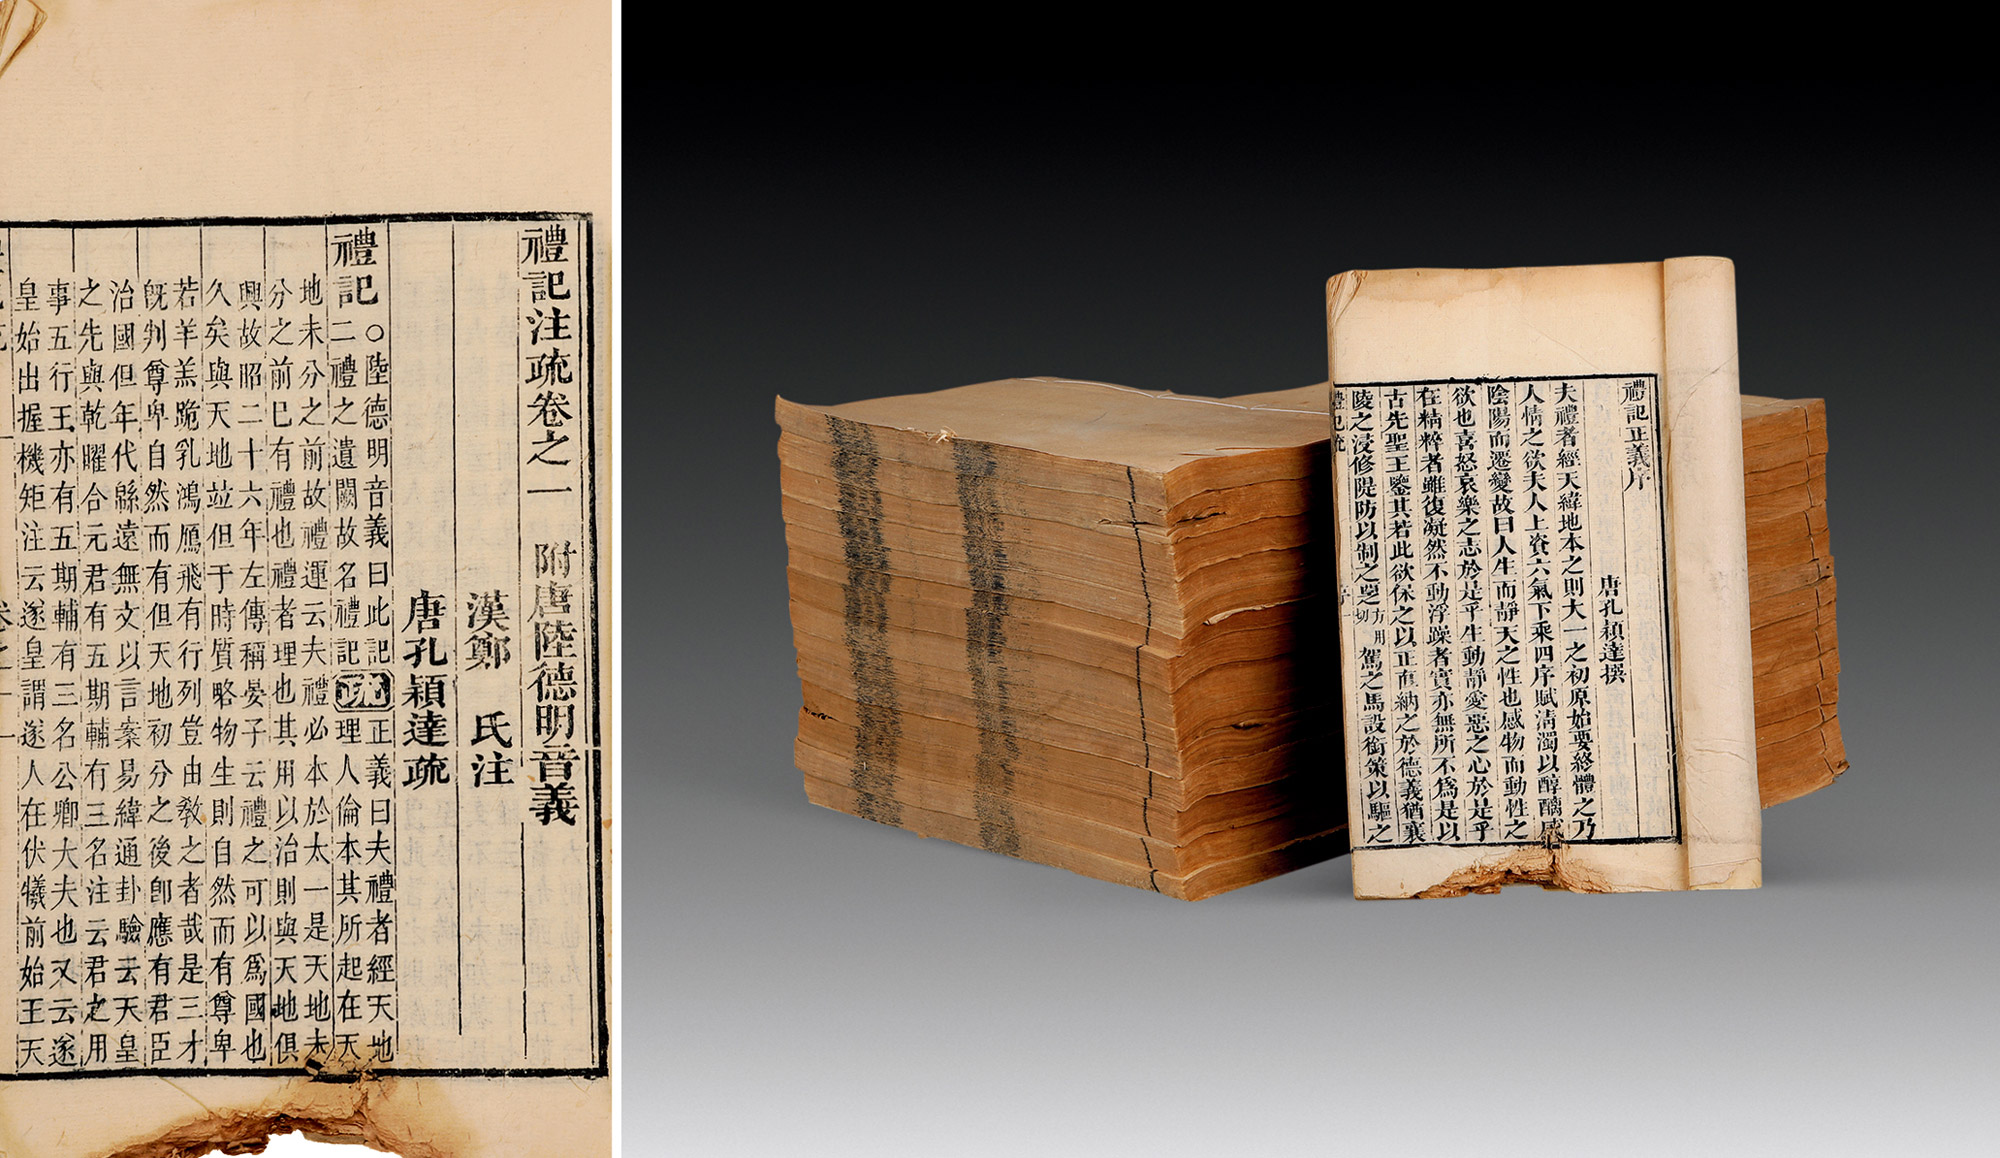 禮記注疏卷之一 附唐陸德明音義
漢鄭 氏注
唐孔穎達疏
禮記 ○陸德明音義曰此記
二禮之遺闕故名禮記
疏 正義曰夫禮者經天地
理人倫本其所起在天
地未分之前故禮運云夫禮必本於太一是天地未
分之前已有禮也禮者理也其用以治則與天地俱
興故昭二十六年左傳稱晏子云禮之可以爲國也
久矣與天地竝但于時質略物生則自然而有尊卑
若羊羔跪乳鴻鴈飛有行列豈由教之者哉是三才
旣判尊卑自然而有但天地初分之後卽應有君臣
治國但年代緜遠無文以言案易緯通卦驗云天皇
之先與乾曜合元君有五期輔有三名注云君之用
事五行王亦有五期輔有三名公卿大夫也又云遂
皇始出握機矩注云遂皇謂遂人在伏犧前始王天
禮記正義序
唐孔穎達撰
夫禮者經天緯地本之則大一之初原始要終體之乃
人情之欲夫人上資六氣下乘四序賦清濁以醇醨感
陰陽而遷變故曰人生而靜天之性也感物而動性之
欲也喜怒哀樂之志於是乎生動靜愛惡之心於是乎
在精粹者雖復凝然不動浮躁者實亦無所不爲是以
古先聖王鑒其若此欲保之以正直納之於德義猶襄
陵之浸修隄防以制之覂方用切駕之馬設銜策以驅之
禮記疏